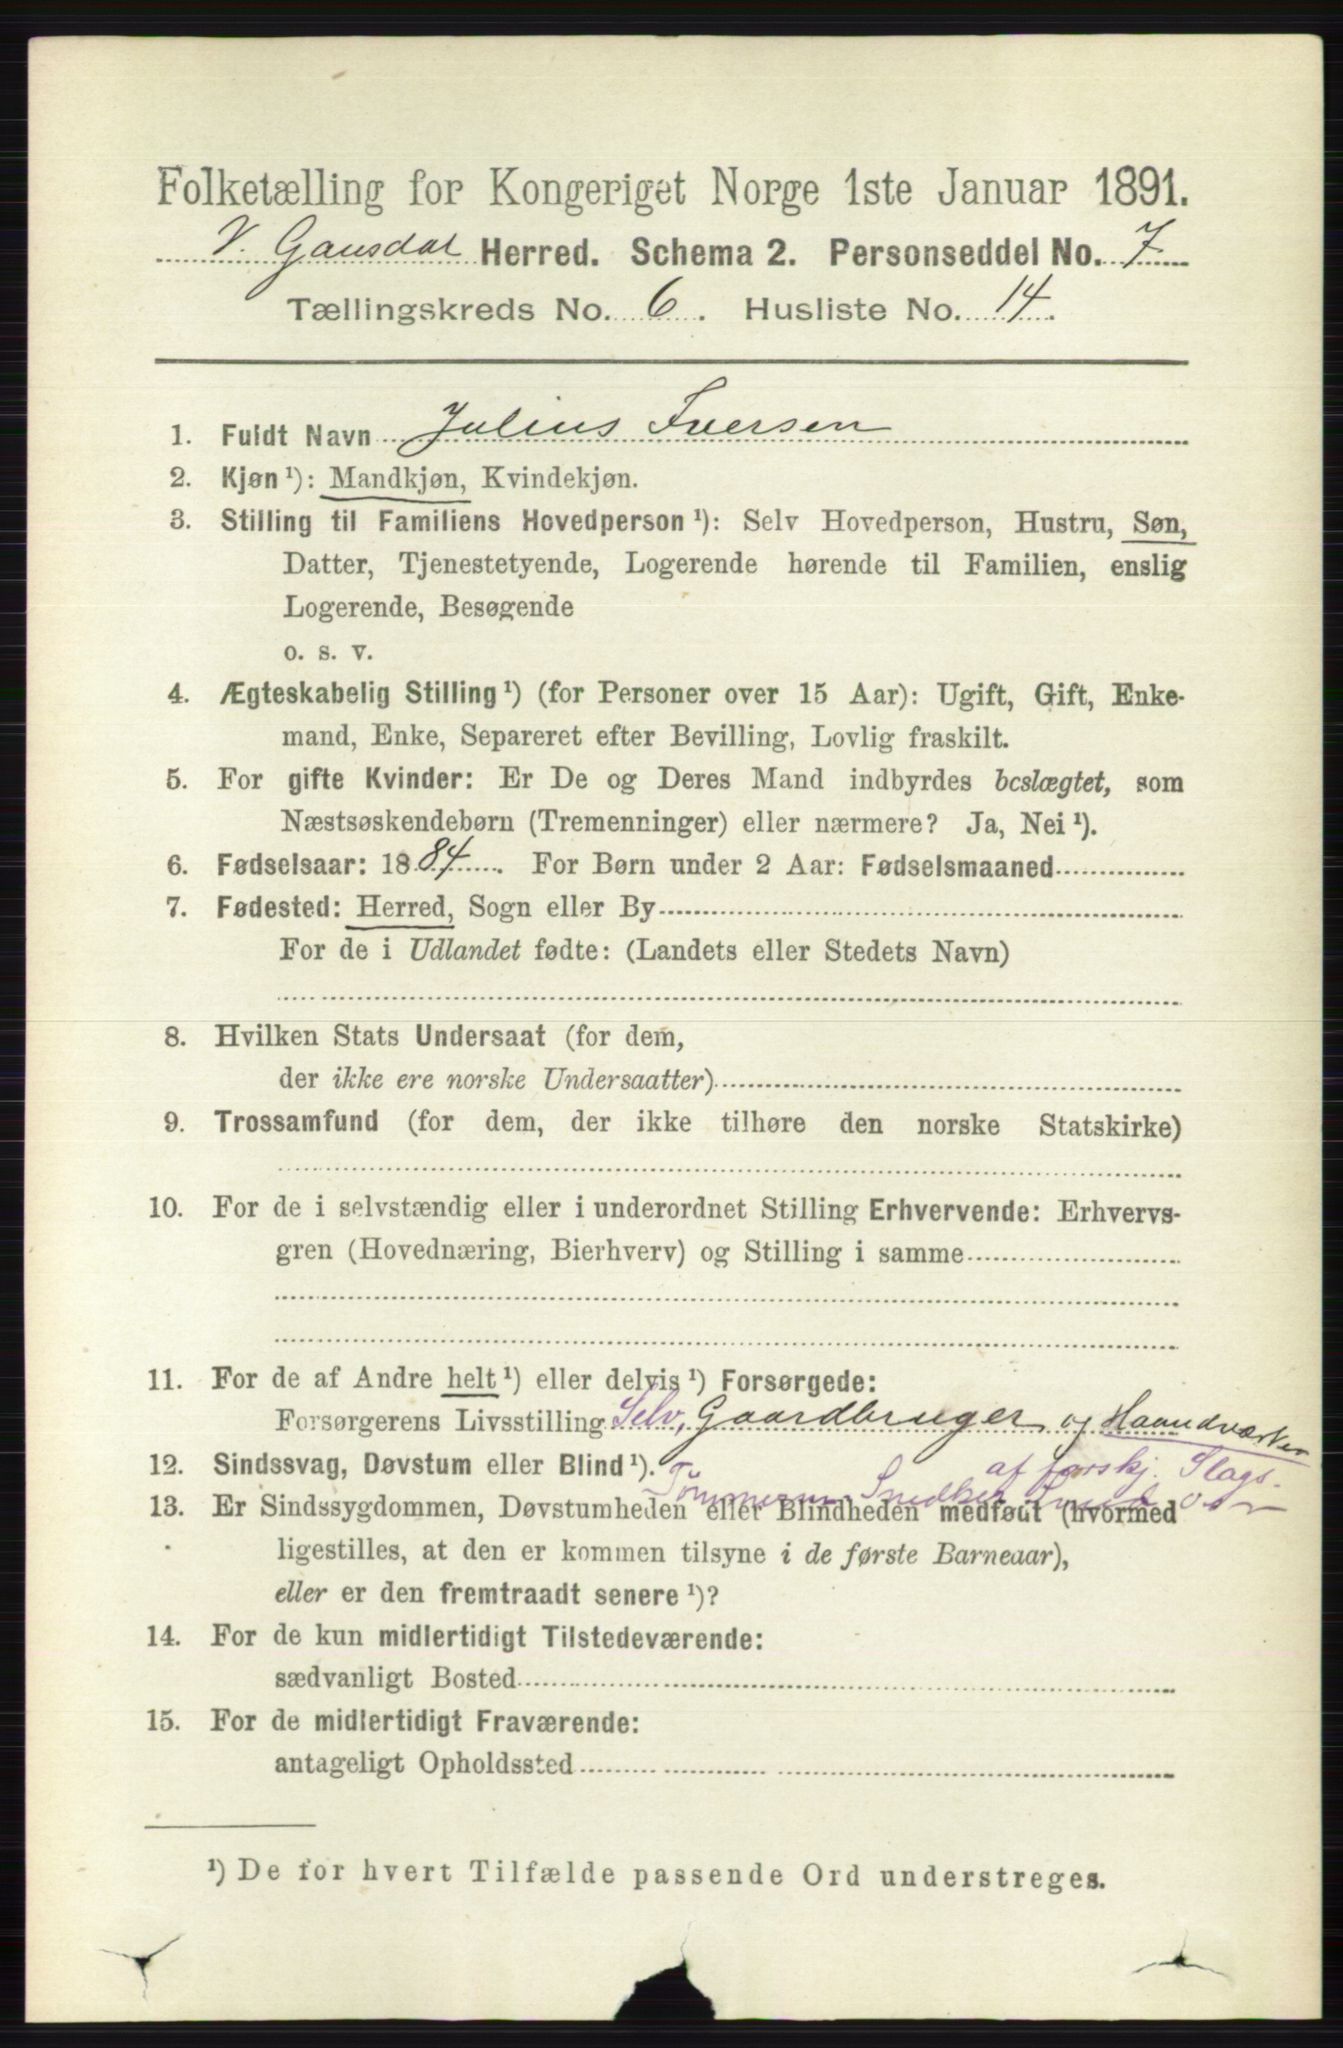 Folketælling for Kongeriget Norge 1ste Januar 1891.
V. Gausdal Herred. Schema 2. Personseddel No. 7
Tællingskreds No. 6. Husliste No. 14.
1. Fuldt Navn Julius Iversen
2. Kjøn ¹): Mandkjøn, Kvindekjøn.
3. Stilling til Familiens Hovedperson ¹): Selv Hovedperson, Hustru, Søn,
Datter, Tjenestetyende, Logerende hørende til Familien, enslig
Logerende, Besøgende
o. s. v.
4. Ægteskabelig Stilling ¹) (for Personer over 15 Aar): Ugift, Gift, Enke-
mand, Enke, Separeret efter Bevilling, Lovlig fraskilt.
5. For gifte Kvinder: Er De og Deres Mand indbyrdes beslægtet, som
Næstsøskendebørn (Tremenninger) eller nærmere? Ja, Nei ¹).
6. Fødselsaar: 1884. For Børn under 2 Aar: Fødselsmaaned
7. Fødested: Herred, Sogn eller By
For de i Udlandet fødte: (Landets eller Stedets Navn)
8. Hvilken Stats Undersaat (for dem,
der ikke ere norske Undersaatter)
9. Trossamfund (for dem, der ikke tilhøre den norske Statskirke)
10. For de i selvstændig eller i underordnet Stilling Erhvervende: Erhvervs-
gren (Hovednæring, Bierhverv) og Stilling i samme
11. For de af Andre helt ¹) eller delvis ¹) Forsørgede:
Forsørgerens Livsstilling Selv, Gaardbruger og Haandværker
af forskj. Slags.
12. Sindssvag, Døvstum eller Blind ¹).
Snedker
13. Er Sindssygdommen, Døvstumheden eller Blindheden medfødt (hvormed
ligestilles, at den er kommen tilsyne i de første Barneaar),
eller er den fremtraadt senere ¹)?
14. For de kun midlertidigt Tilstedeværende:
sædvanligt Bosted
15. For de midlertidigt Fraværende:
antageligt Opholdssted
¹) De for hvert Tilfælde passende Ord understreges.